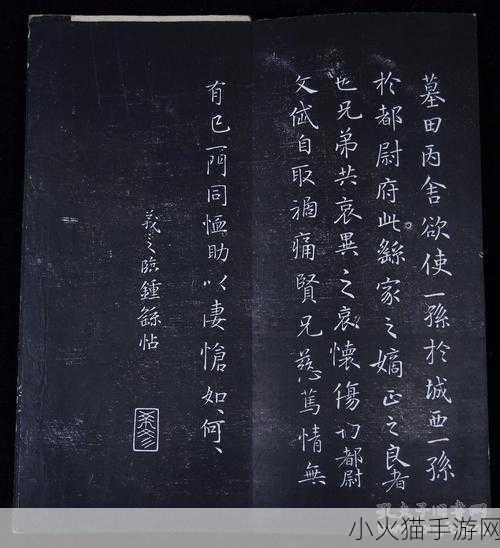 墓田丙舍欲使一孫於城西一孫
於都尉府此繇家之嫡正之良者
也兄弟共哀異之哀懷傷切都尉
文岱自取禍痛賢兄慈篤情無
有已一門同恤助以悽愴如何
羲之臨鍾繇帖
孔夫子旧书网
小火猫手游网